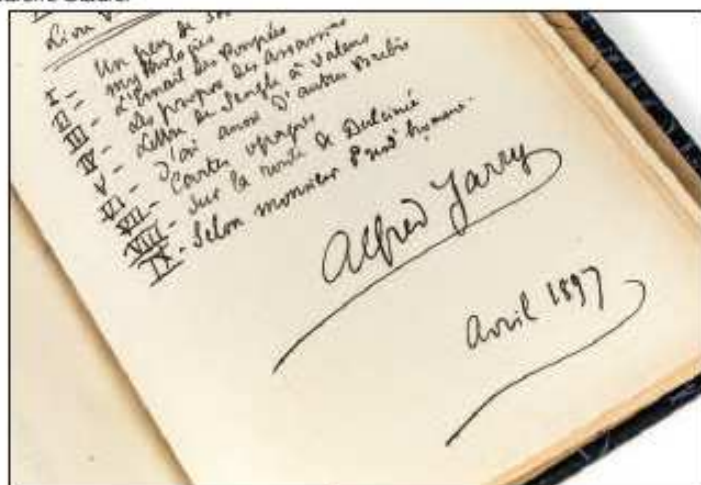 Livre
I - Un peu de
II - mythologies
III - L'Email des Poupées
IV - Les propos des assassins
V - Lettre de Sengle à Valens
VI - J'ai aussi d'autres Brebis
VII - Contes opaques
VIII - Sur la route de Dulcinée
IX - Selon monsieur
Alfred Jarry
Avril 1897